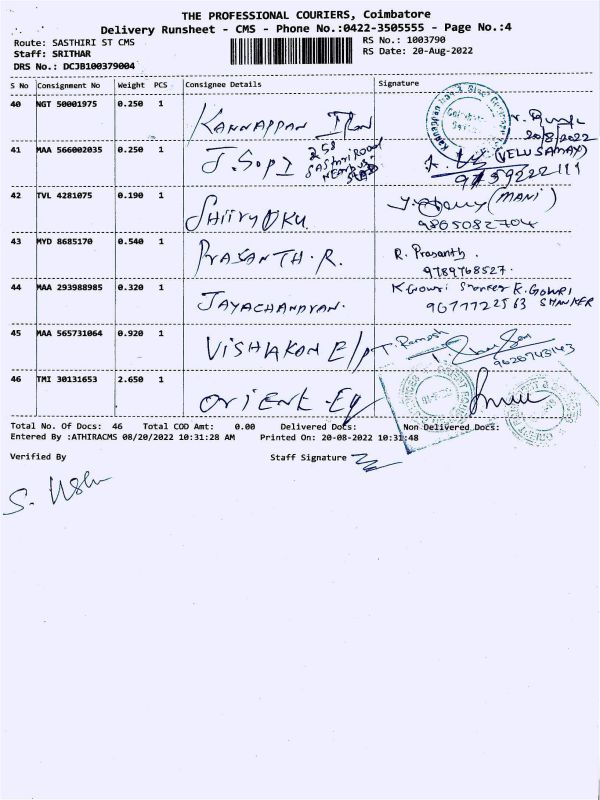 THE PROFESSIONAL COURIERS, Coimbatore
Delivery Runsheet - CMS - Phone No.:0422-3505555 - Page No.:4
Route: SASTHIRI ST CMS RS No.: 1003790
Staff: SRITHAR RS Date: 20-Aug-2022
DRS No.: DCJB100379004
S No Consignment No Weight PCS Consignee Details Signature
40 NGT 50001975 0.250 1 KANNAPPAN Iron 20/8/2022
41 MAA 566002035 0.250 1 J. Gopi 258 SASthri Road (VELUSAMAY)
42 TVL 4281075 0.190 1 (MANI)
9865082704
43 MYD 8685170 0.540 1 PRASANTH. R. R. Prasanth.
9789768527.
44 MAA 293988985 0.320 1 JAYACHANDRAN. K Gowri Shanker K. GOWRI
9677722563 SHANKER
45 MAA 565731064 0.920 1 VISHAKON E/P T. Ramesh
9620743143
46 TMI 30131653 2.650 1 Orient - Eq
Total No. Of Docs: 46 Total COD Amt: 0.00 Delivered Docs: Non Delivered Docs:
Entered By :ATHIRACMS 08/20/2022 10:31:28 AM Printed On: 20-08-2022 10:31:48
Verified By Staff Signature